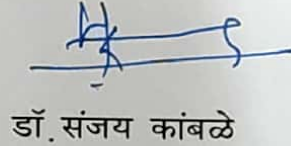 डॉ. संजय कांबळे